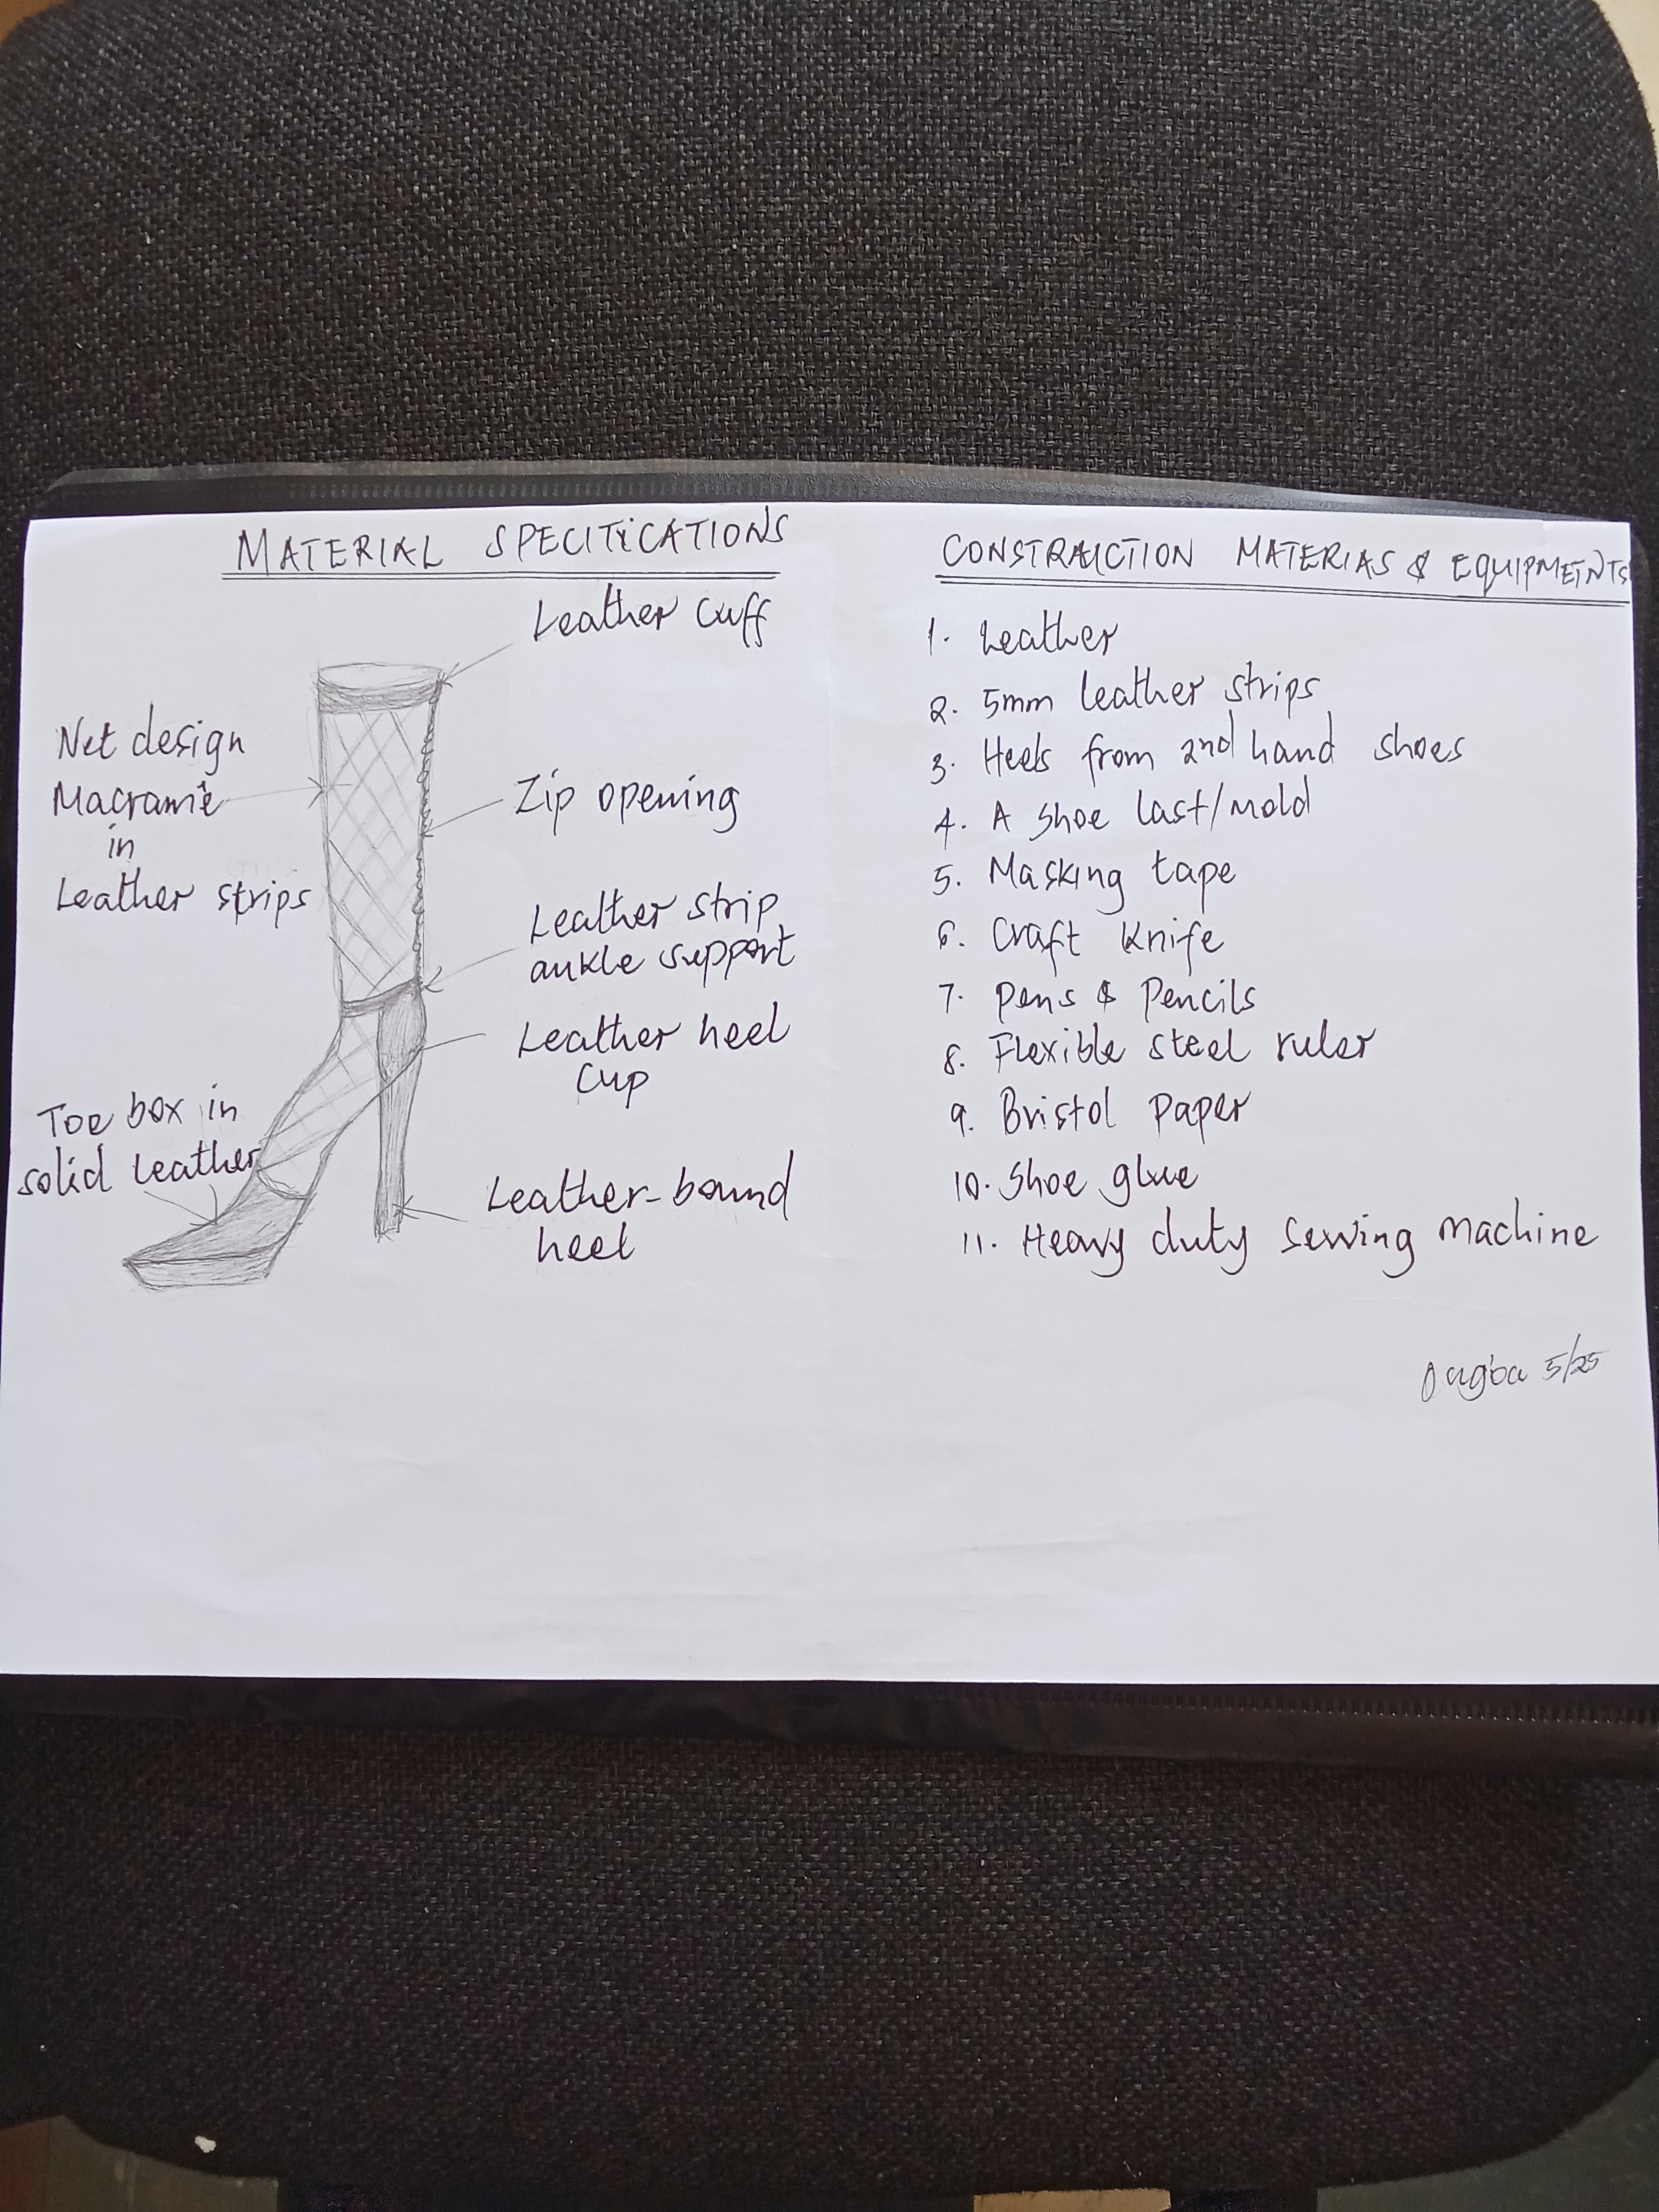 MATERIAL SPECIFICATIONS
Leather cuff
Net design
Macramé
in
Leather strips
Zip opening
Leather strip
ankle support
Leather heel
cup
Toe box in
solid leather
Leather-bound
heel
CONSTRAUCTION MATERIAS & EQUIPMEINTS
1. Leather
2. 5mm leather strips
3. Heels from 2nd hand shoes
4. A shoe last/mold
5. Masking tape
6. Craft knife
7. Pens & Pencils
8. Flexible steel ruler
9. Bristol paper
10. Shoe glue
11. Heavy duty sewing machine
5/25